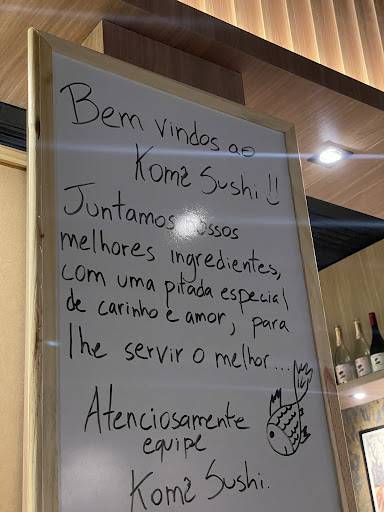 Bem vindos ao
Komê Sushi!!
Juntamos nossos
melhores ingredientes,
com uma pitada especial
de carinho e amor, para
lhe servir o melhor...
Atenciosamente
equipe
Komê Sushi.